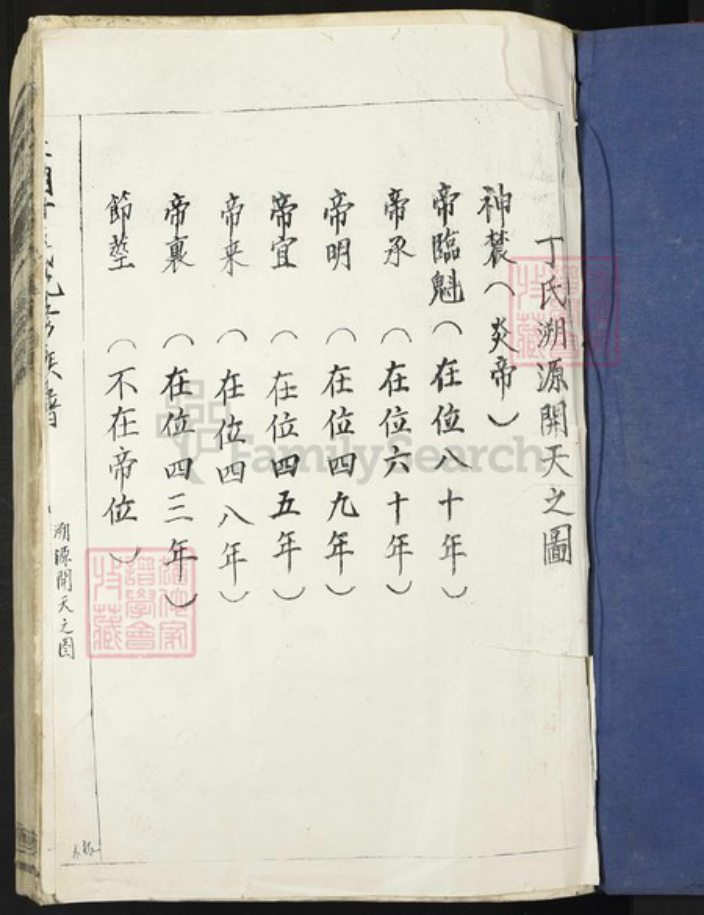 丁氏溯源開天之圖
神農（炎帝）
帝臨魁（在位八十年）
帝承（在位六十年）
帝明（在位四九年）
帝宜（在位四五年）
帝来（在位四八年）
帝裏（在位四三年）
節莖（不在帝位）
溯源開天之图
FamilySearch